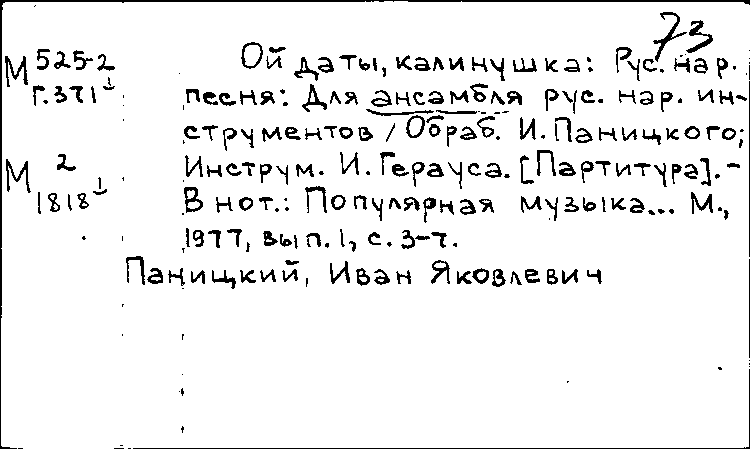 73
М 525-2
Г.371
Ой даты, калинушка: Рус. нар.
песня: Для ансамбля рус. нар. ин-
струментов / Обраб. И. Паницкого;
М 2
1818
Инструм. И. Герауса. [Партитура]. -
В нот.: Популярная музыка... М.,
1977, вып. 1, с. 3-7.
Паницкий, Иван Яковлевич